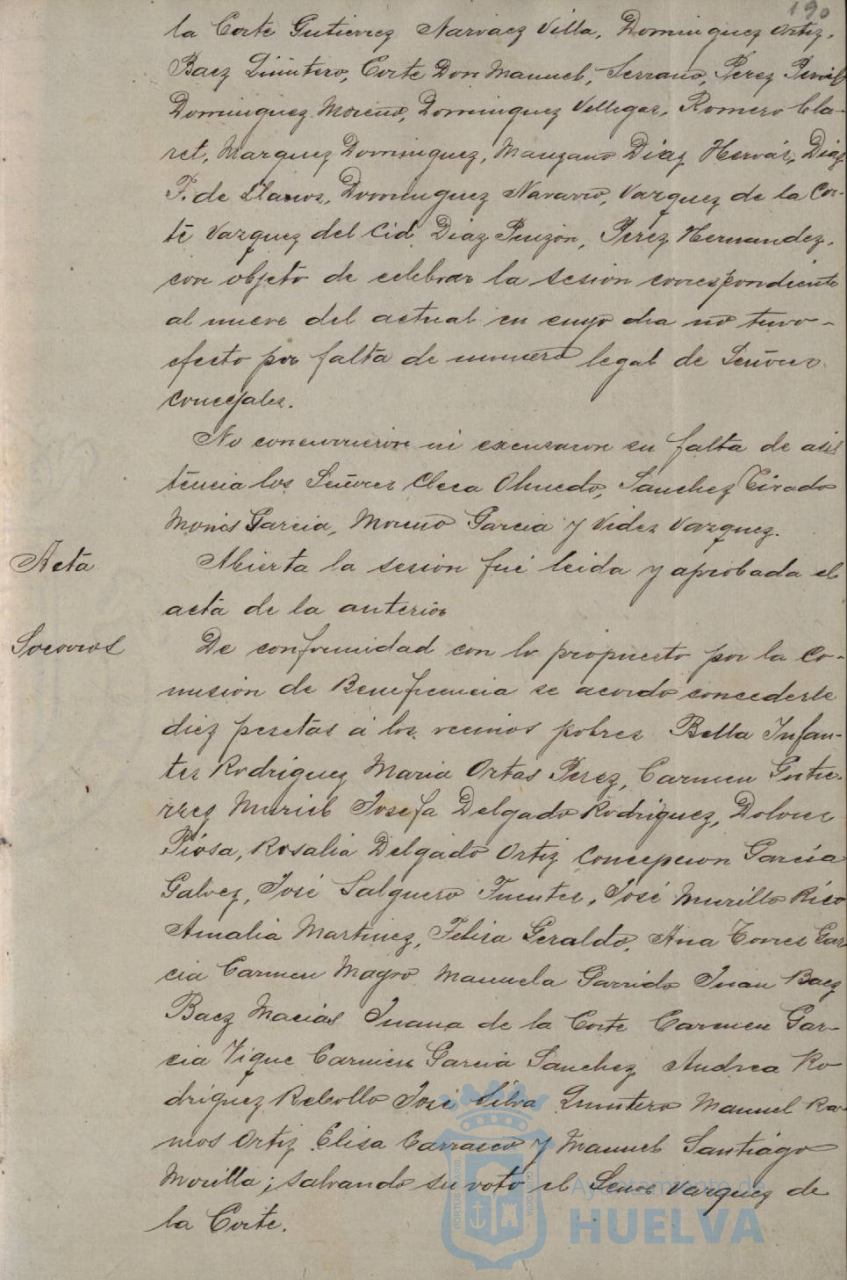 190
la Corte Gutierrez Narvaez Villa, Dominguez Ortiz,
Baez Quintero, Corte Don Manuel, Serrano, Perez
Dominguez Moreno, Dominguez Villegas, Romero Cla-
ret, Marquez Dominguez, Manzano Diaz Hervás, Diaz
F. de Llanos, Dominguez Navarro, Vazquez de la Cor-
te Vazquez del Cid Diaz Pinzón, Perez Hernandez,
con objeto de celebrar la sesion correspondiente
al nueve del actual en cuyo dia no tuvo-
efecto por falta de numero legal de Señores
Concejales.
No concurrieron ni excusaron su falta de asis
tencia los Señores Checa Olmedo, Sanchez Tirado
Monis Garcia, Moreno Garcia y Videz Vazquez.
Acta
Abierta la sesion fué leida y aprobada el
acta de la anterior
Socorros
De conformidad con lo propuesto por la Co-
mision de Beneficencia se acordo concederle
diez pesetas á los vecinos pobres Bella Infan-
tes Rodriguez Maria Ortas Perez, Carmen Gutie-
rrez Muriel Josefa Delgado Rodriguez, Dolores
Piosa, Rosalia Delgado Ortiz Concepcion Garcia
Galvez, José Salguero Fuentes, José Murillo Rico
Amalia Martinez, Felisa Geraldo, Ana Torres Gar
cia Carmen Magro Manuela Garrido Juan Baez
Baez Macias Juana de la Corte Carmen Gar-
cia Vique Carmen Garcia Sanchez Andrea Ro
driguez Rebollo José Silva Quintero Manuel Ra-
mos Ortiz Elisa Carrasco y Manuel Santiago
Morilla; salvando su voto el Señor Vazquez de
la Corte.
Ayuntamiento de
HUELVA